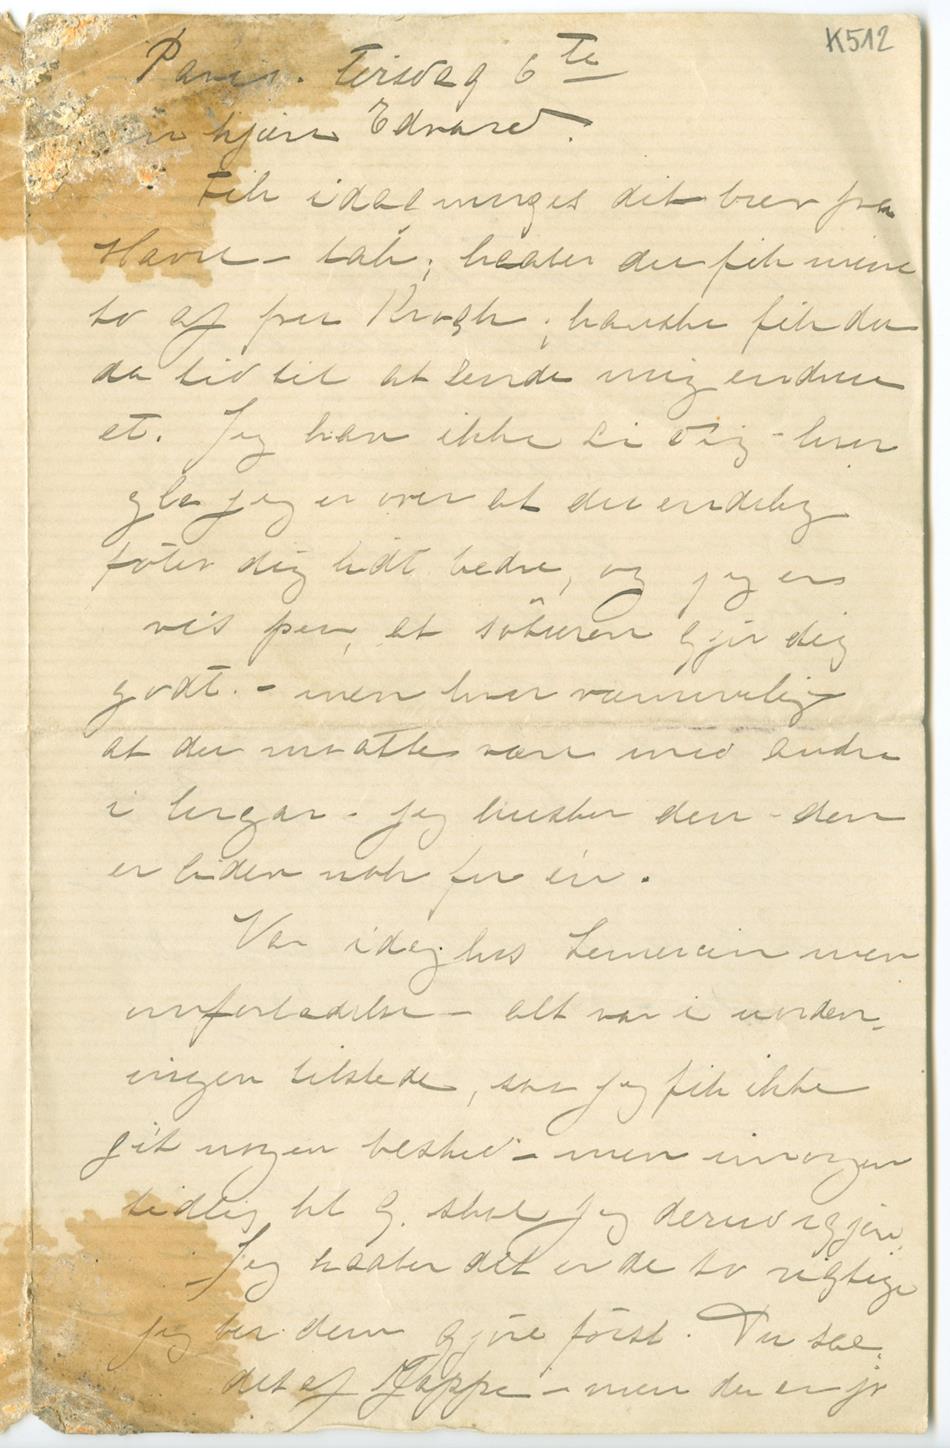 K512
Paris. Tirsdag 6te
kjære Edvard.
Fik idag morges dit brev fra
Havre – tak; haaber du fik mine
to af fru Krogh; kanske fik du
da tid til at sende mig endnu
et. Jeg kan ikke si dig – hvor
gla jeg er over at du endelig
føler dig lidt bedre, og jeg er
vis paa, at søturen gjør dig
godt. – men hvor væmmelig
at du maatte være med andre
i lugar – jeg husker den – den
er liden nok for én.
Var idag hos Lemercier men
omforladelse – alt var i uorden,
ingen tilstede, saa jeg fik ikke
git nogen besked – men imorgen
tidlig kl 9. skal jeg derned igjen.
Jeg haaber det er de to rigtige
jeg ber dem gjøre først. Du sae
det af Jappe – men du er jo